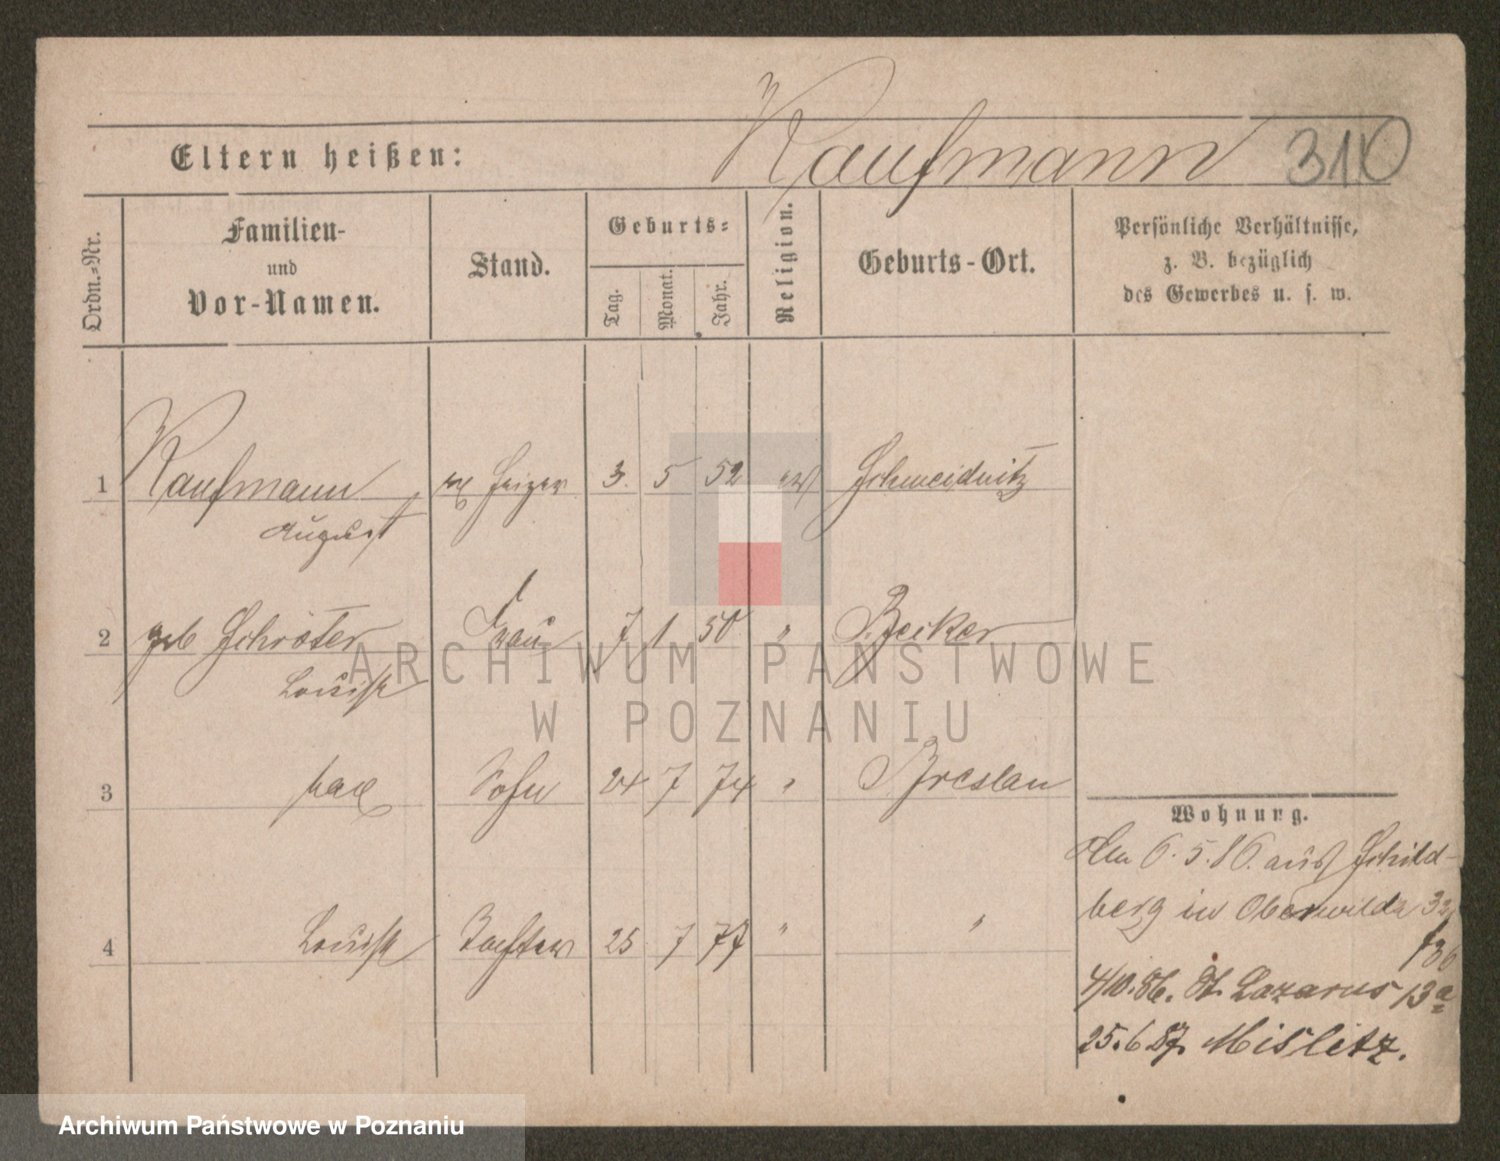 Eltern heißen:
Kaufmann 310
Ordn.-Nr.
Familien-
und
Vor-Namen.
Stand.
Geburts-
Tag.
Monat.
Jahr.
Religion.
Geburts-Ort.
Persönliche Verhältnisse,
z. B. bezüglich
des Gewerbes u. s. w.
1 Kaufmann Heizer 3. 5 52 ev Schweidnitz
August
2 geb Schröter Frau 7 1 50 " Becker
Louise
3 Max Sohn 24 7 74 " Breslau
4 Louise Tochter 25 7 77 " "
Wohnung.
Am 6.5.86. aus Schild-
berg in Oberwilda 32
4/10.86. St. Lazarus 13a
25.6.87. Mislitz.
ARCHIWUM PAŃSTWOWE
W POZNANIU
Archiwum Państwowe w Poznaniu